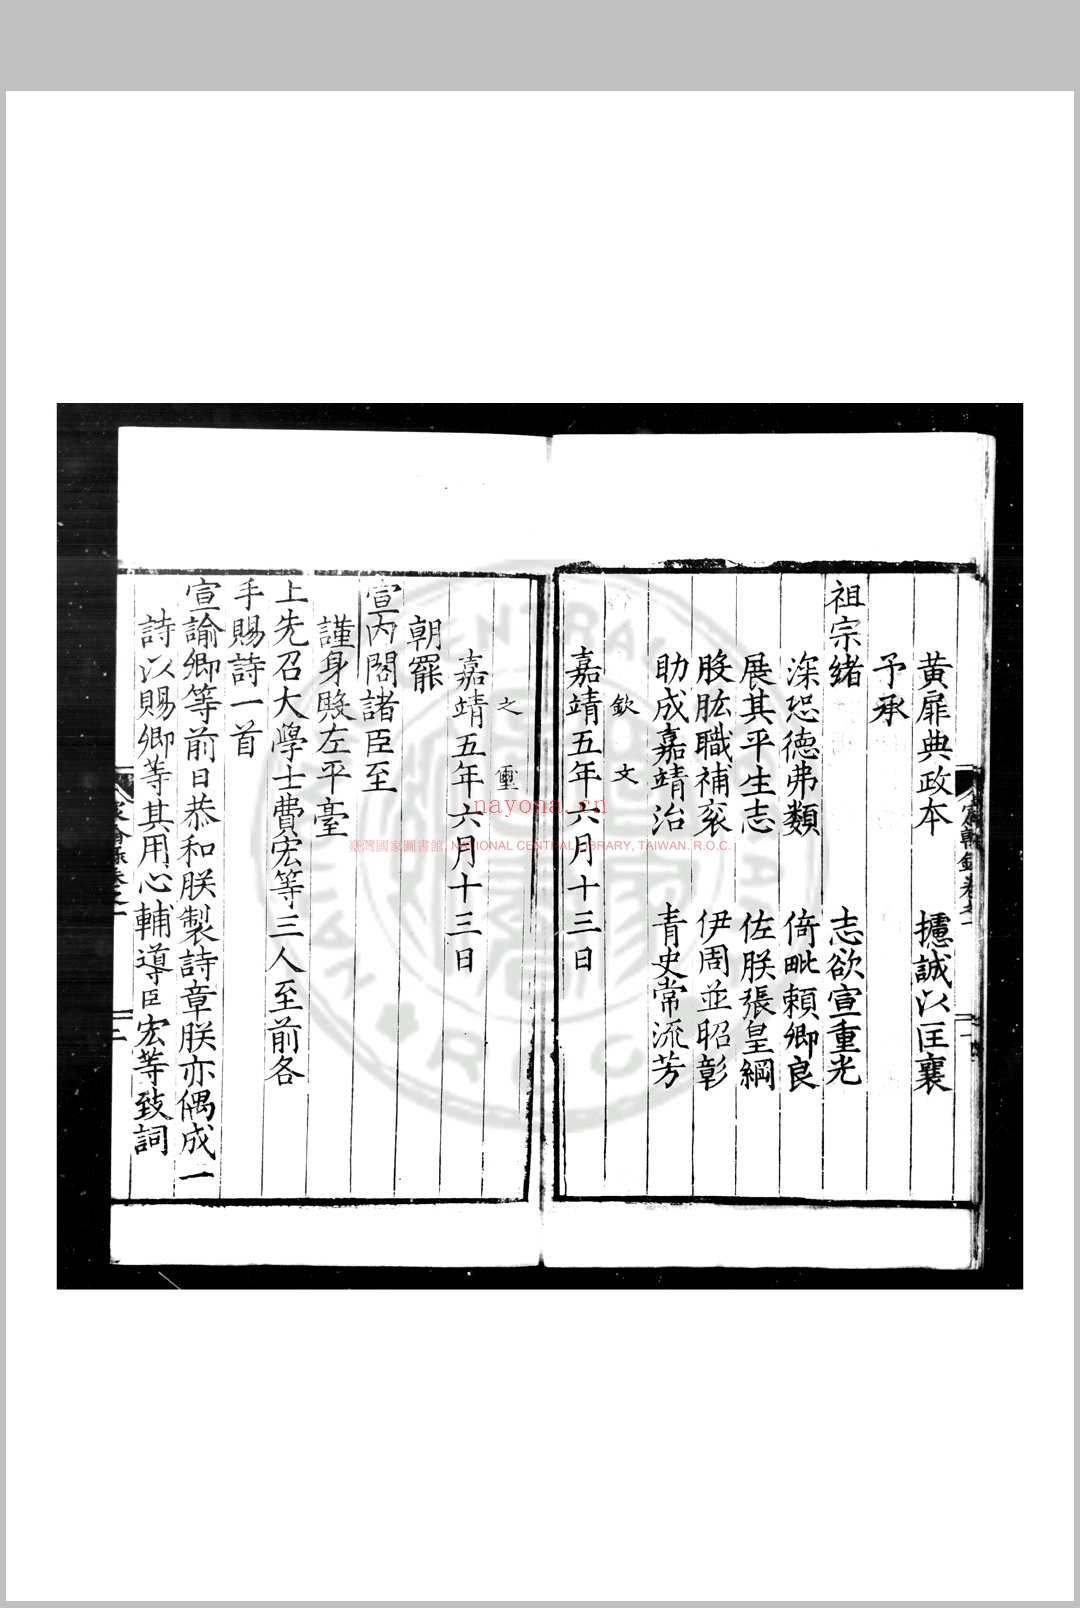 黄扉典政本　攄誠以匡襄
予承
祖宗緒　志欲宣重光
深恐德弗類　倚毗頼卿良
展其平生志　佐朕張皇綱
股肱職補衮　伊周並昭彰
助成嘉靖治　青史常流芳
欽文
嘉靖五年六月十三日
之璽
嘉靖五年六月十三日
朝罷
宣内閣諸臣至
謹身殿左平臺
上先召大學士費宏等三人至前各
手賜詩一首
宣諭卿等前日恭和朕製詩章朕亦偶成一
詩以賜卿等其用心輔導臣宏等致詞
nayona.cn
臺灣國家圖書館, NATIONAL CENTRAL LIBRARY, TAIWAN, R.O.C.